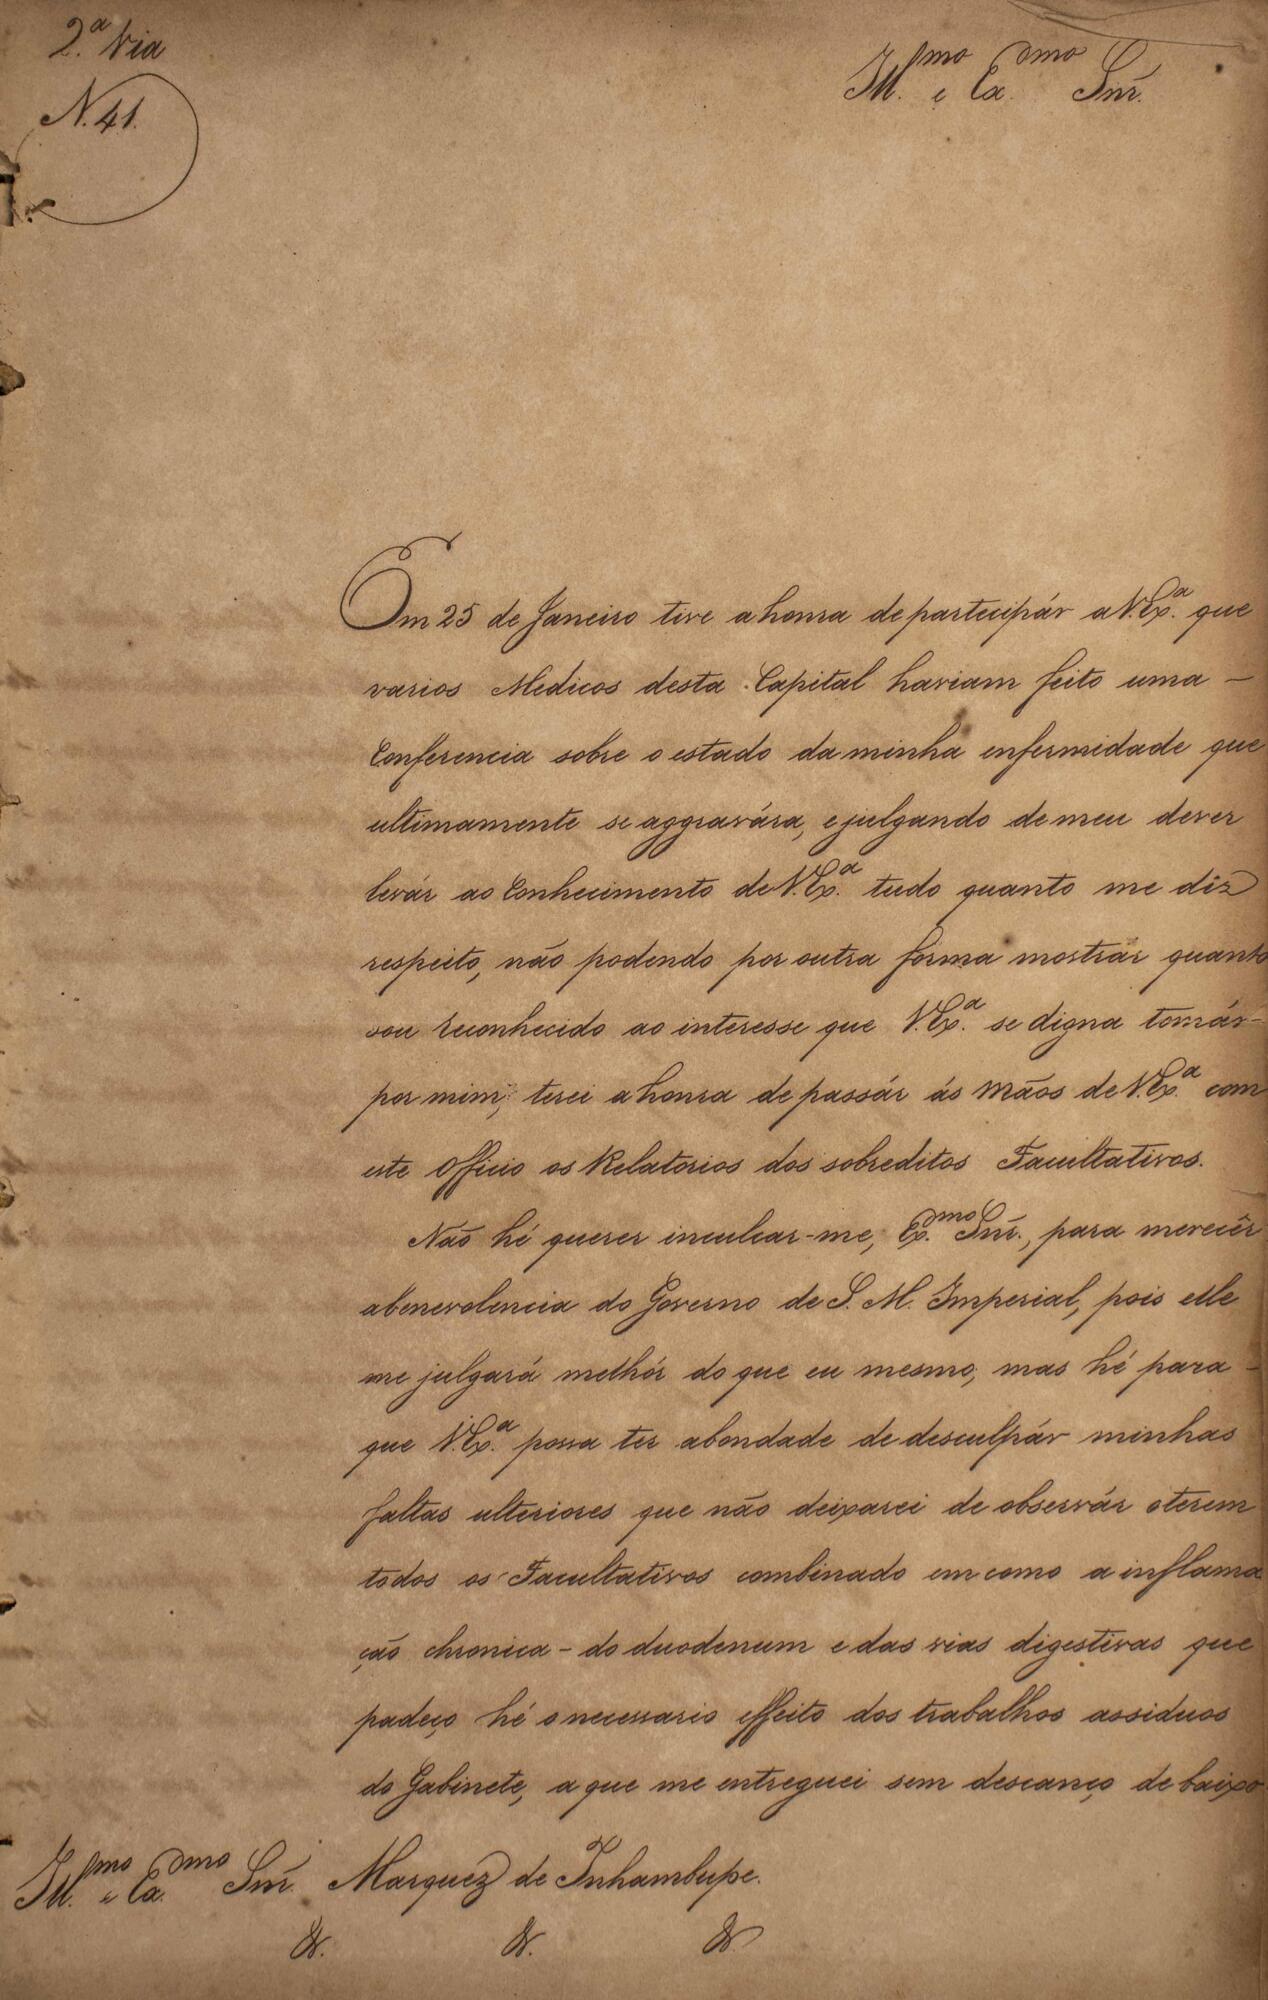 2.ª Via
N. 41.
Ill.mo e Ex.mo Snr.
Em 25 de Janeiro tive a honra de partecipár a V. Ex.ª que
varios Medicos desta Capital haviam feito uma -
Conferencia sobre o estado da minha enfermidade que
ultimamente se aggravára, e julgando de meu dever
levár ao Conhecimento de V. Ex.ª tudo quanto me diz
respeito, não podendo por outra forma mostrár quanto
sou reconhecido ao interesse que V. Ex.ª se digna tomár-
por mim, terei a honra de passár ás mãos de V. Ex.ª com
este Officio os Relatorios dos sobreditos Facultativos.
Não hé querer inculcar-me, Ex.mo Snr., para merecêr
a benevolencia do Governo de S. M. Imperial, pois elle
me julgará melhór do que eu mesmo, mas hé para -
que V. Ex.ª possa ter a bondade de desculpár minhas
faltas ulteriores que não deixarei de observár o terem
todos os Facultativos combinado em como a inflama
ção chronica - do duodenum e das vias digestivas que
padeço hé o necessario effeito dos trabalhos assiduos
do Gabinete, a que me entreguei sem descanço de baixo
Ill.mo e Ex.mo Snr. Marquez de Inhambupe.
&. &. &.